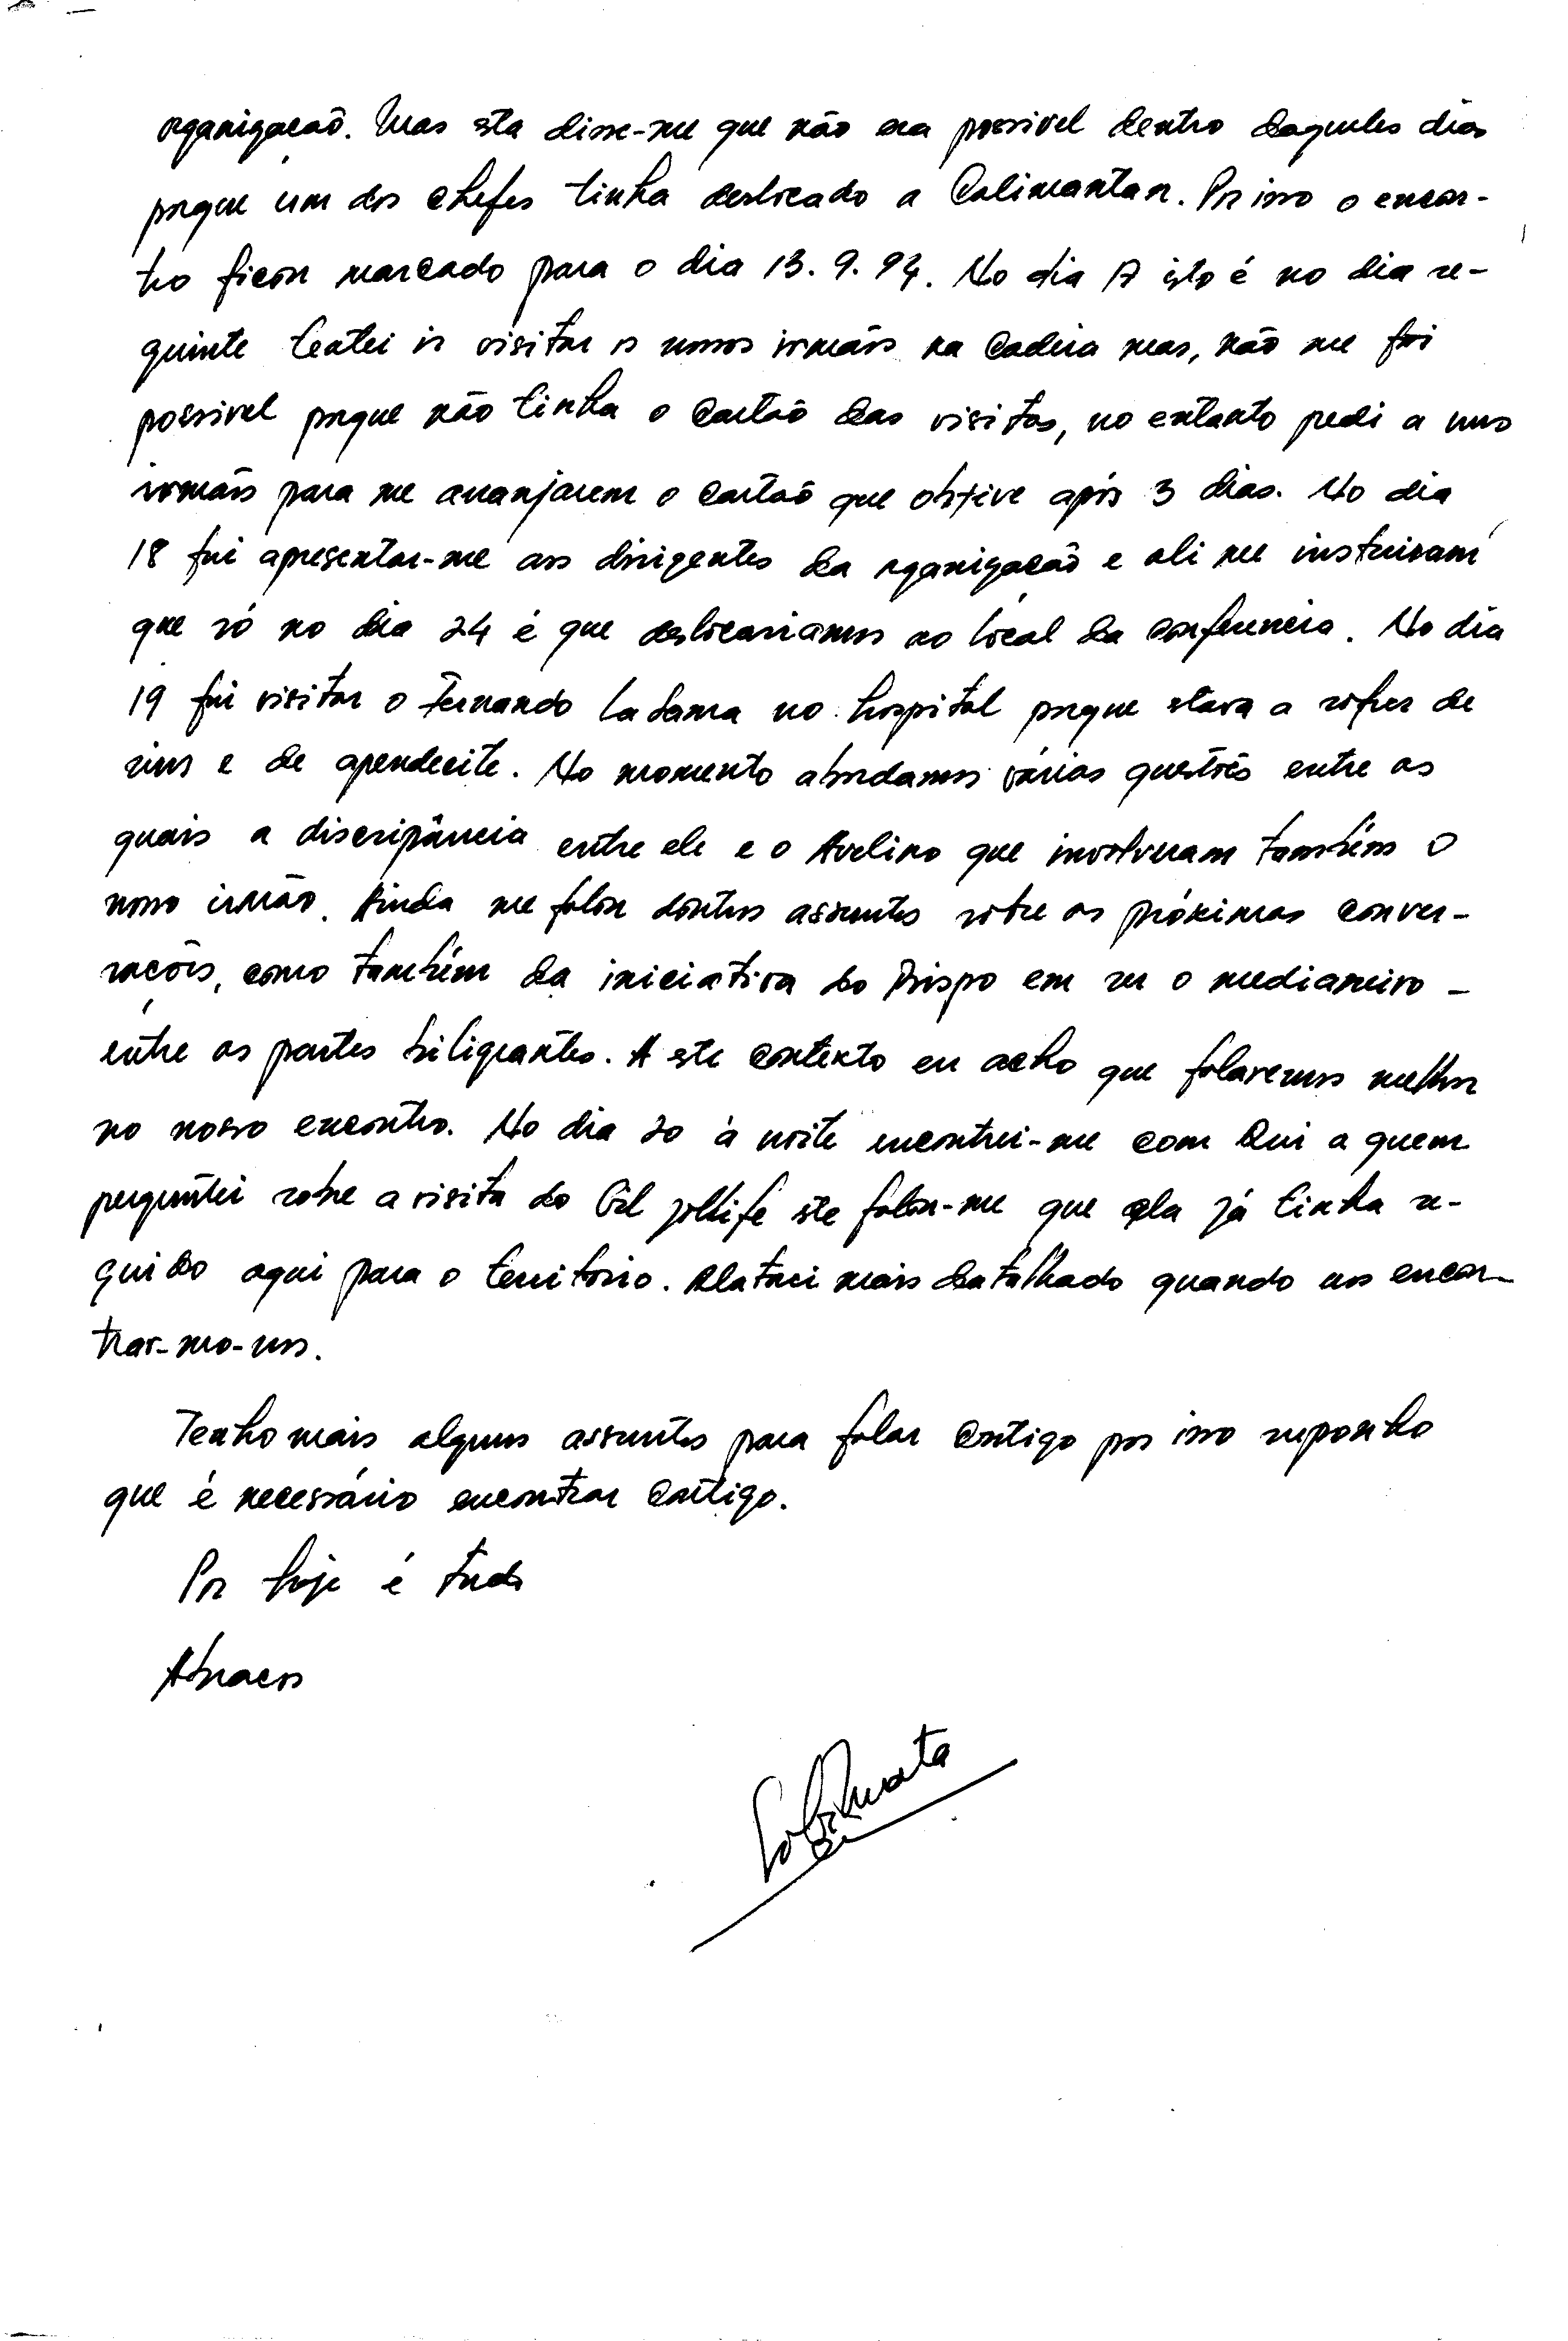 organização. Mas esta disse-me que não era possivel dentro daqueles dias
porque um dos chefes tinha deslocado a Calimantan. Por isso o encon-
tro ficou marcado para o dia 13.9.94. No dia 17 isto é no dia se-
guinte tentei ir visitar os nossos irmãos na cadeia mas, não me foi
possivel porque não tinha o cartão das visitas, no entanto pedi a uns
irmãos para me arranjarem o cartão que obtive após 3 dias. No dia
18 fui apresentar-me aos dirigentes da organização e ali me instruiram
que só no dia 24 é que deslocariamos ao local da conferencia. No dia
19 fui visitar o Fernando Lasama no hospital porque estava a sofrer de
rins e de apendecite. No momento abordamos várias questões entre as
quais a discripância entre ele e o Avelino que involveram também o
nosso irmão. Ainda me falou doutros assuntos sobre as próximas conver-
sações, como também da iniciativa do Bispo em ser o medianeiro -
entre as partes biligrantes. A este contexto eu acho que falaremos melhor
no nosso encontro. No dia 20 à noite encontrei-me com Rui a quem
perguntei sobre a visita do este falou-me que ela já tinha se-
guido aqui para o territorio. Relatarei mais datalhado quando nos encon-
trar-mo-nos.
Tenho mais alguns assuntos para falar contigo por isso suponho
que é necessário encontrar contigo.
Por hoje é tudo
Abraços